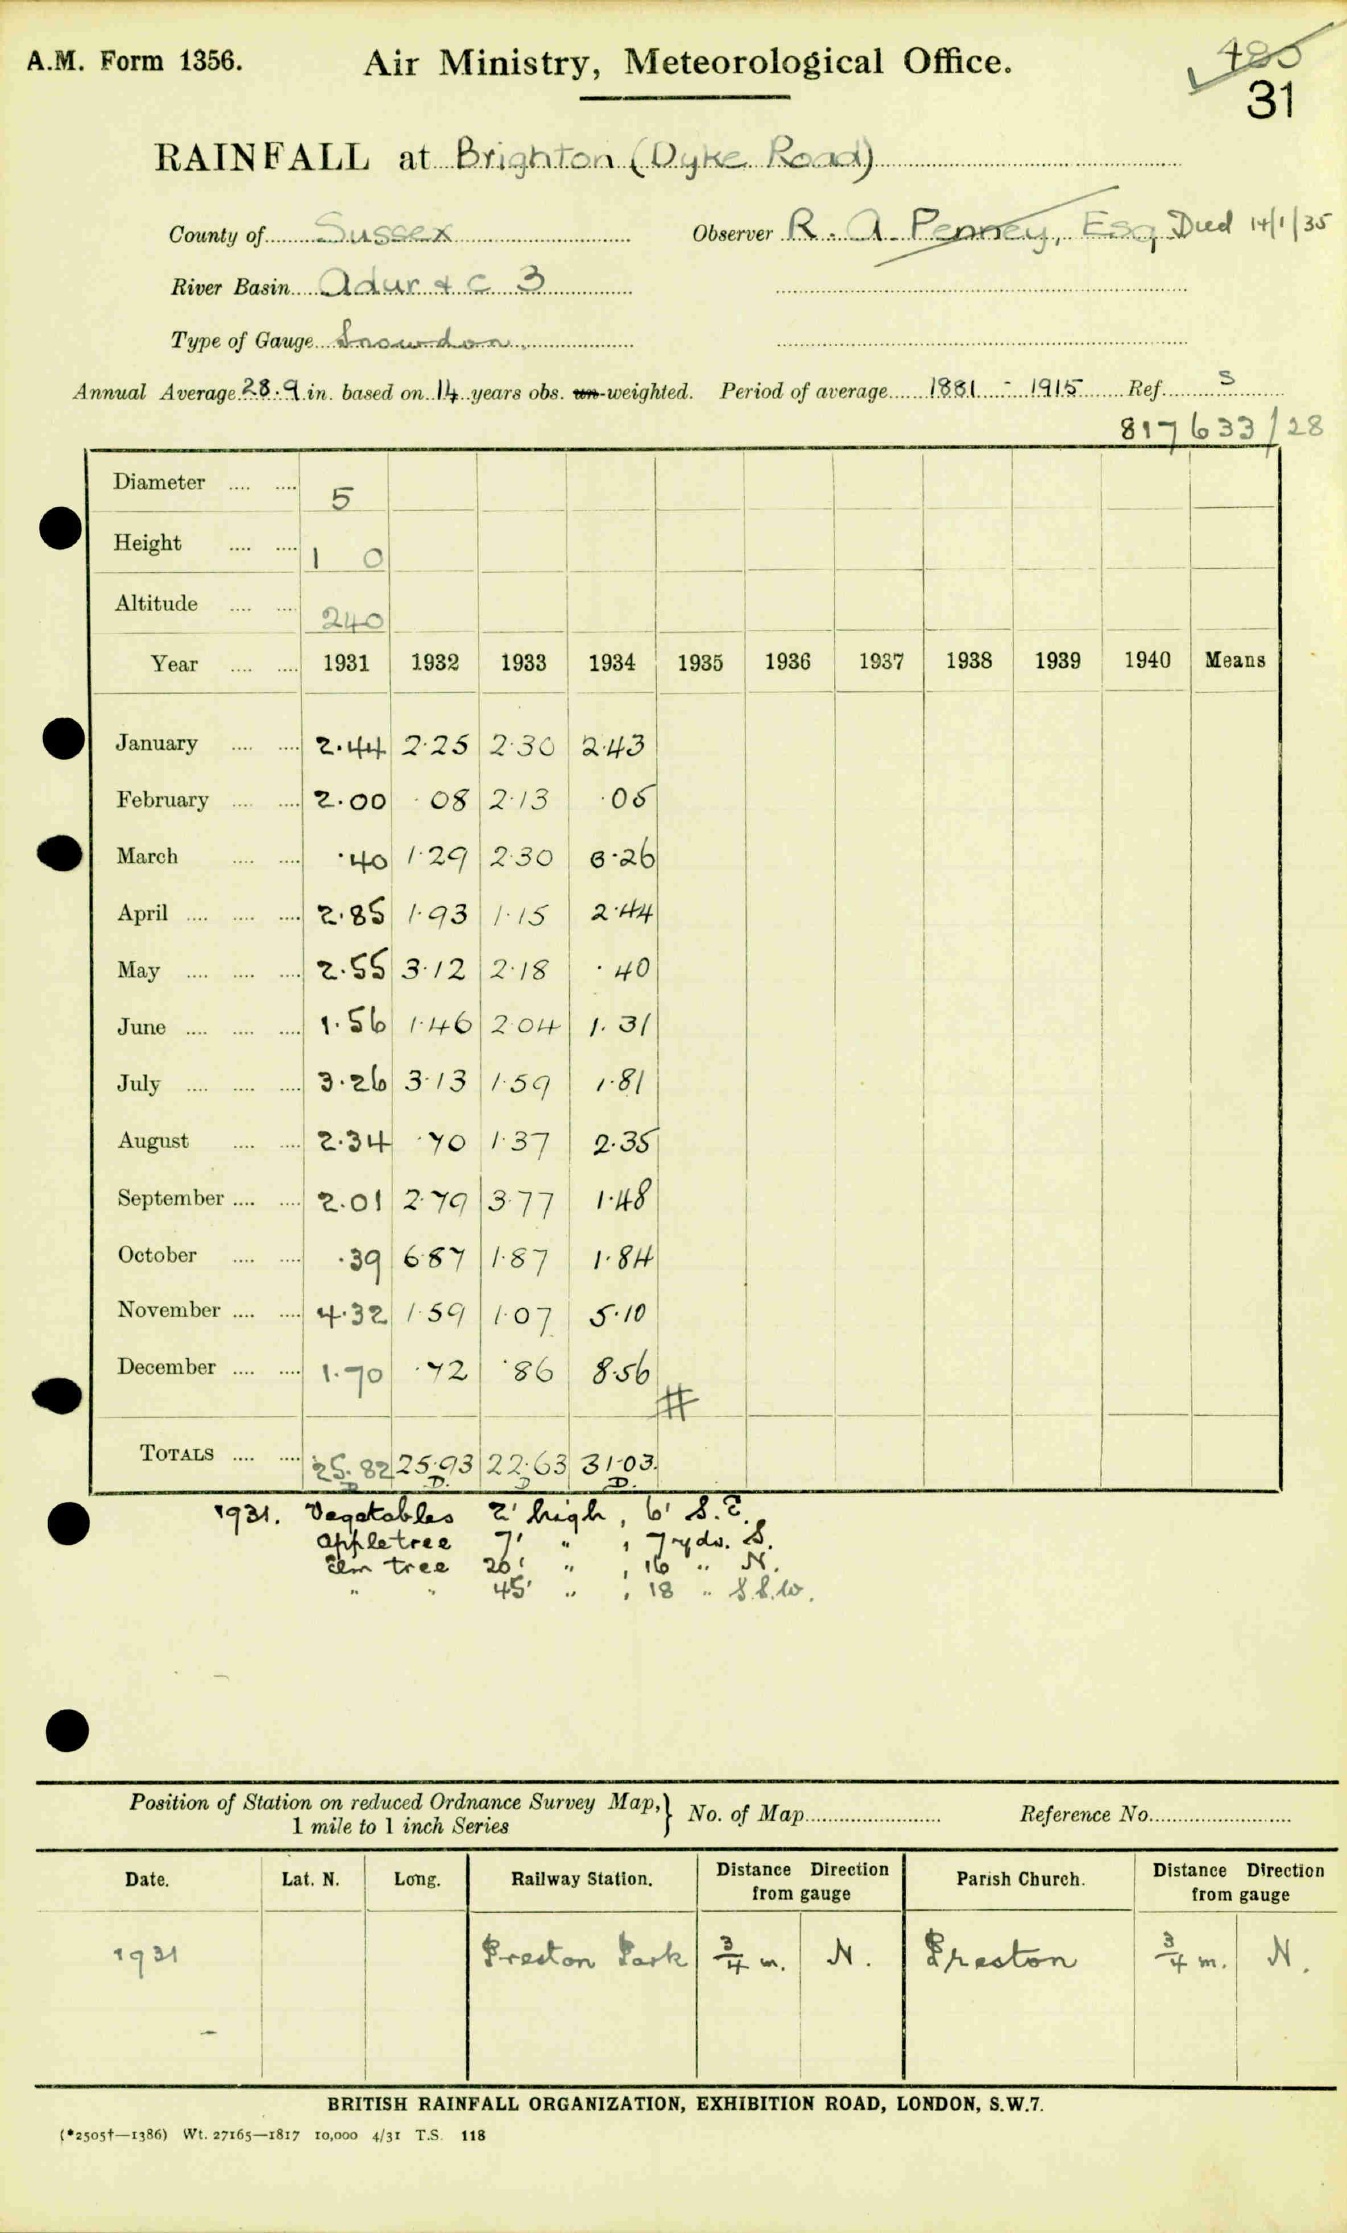 A.M. Form 1356. Air Ministry, Meteorological Office. 485
31
RAINFALL at Brighton (Dyke Road)
County of Sussex Observer R. A. Penney, Esq Died 14/1/35
River Basin Adur & C 3
Type of Gauge Snowdon.
Annual Average 28.9 in. based on 14 years obs. un-weighted. Period of average 1881 - 1915 Ref. S
817633/28
Diameter .... .... 5
Height .... .... 1 0
Altitude .... .... 240
Year .... .... 1931 1932 1933 1934 1935 1936 1937 1938 1939 1940 Means
January .... .... 2.44 2.25 2.30 2.43
February .... .... 2.00 .08 2.13 .05
March .... .... .40 1.29 2.30 3.26
April .... .... .... 2.85 1.93 1.15 2.44
May .... .... .... 2.55 3.12 2.18 .40
June .... .... .... 1.56 1.46 2.04 1.31
July .... .... .... 3.26 3.13 1.59 1.81
August .... .... 2.34 .70 1.37 2.35
September .... .... 2.01 2.79 3.77 1.48
October .... .... .39 6.87 1.87 1.84
November .... .... 4.32 1.59 1.07 5.10
December .... .... 1.70 .72 .86 8.56
#
TOTALS .... .... 25.82 25.93 22.63 31.03.
D D. D D.
1931. Vegetables 2' high, 6' S.E.
Appletree 7' " , 7 yds. S.
Elm tree 20' " , 16 " N.
" " 45' " , 18 " S.S.W.
Position of Station on reduced Ordnance Survey Map, } No. of Map Reference No.
1 mile to 1 inch Series
Date. Lat. N. Long. Railway Station. Distance Direction from gauge Parish Church. Distance Direction from gauge
1931 Preston Park 3/4 m. N. Preston 3/4 m. N.
BRITISH RAINFALL ORGANIZATION, EXHIBITION ROAD, LONDON, S.W.7.
(*2505†—1386) Wt. 27165—1817 10,000 4/31 T.S. 118